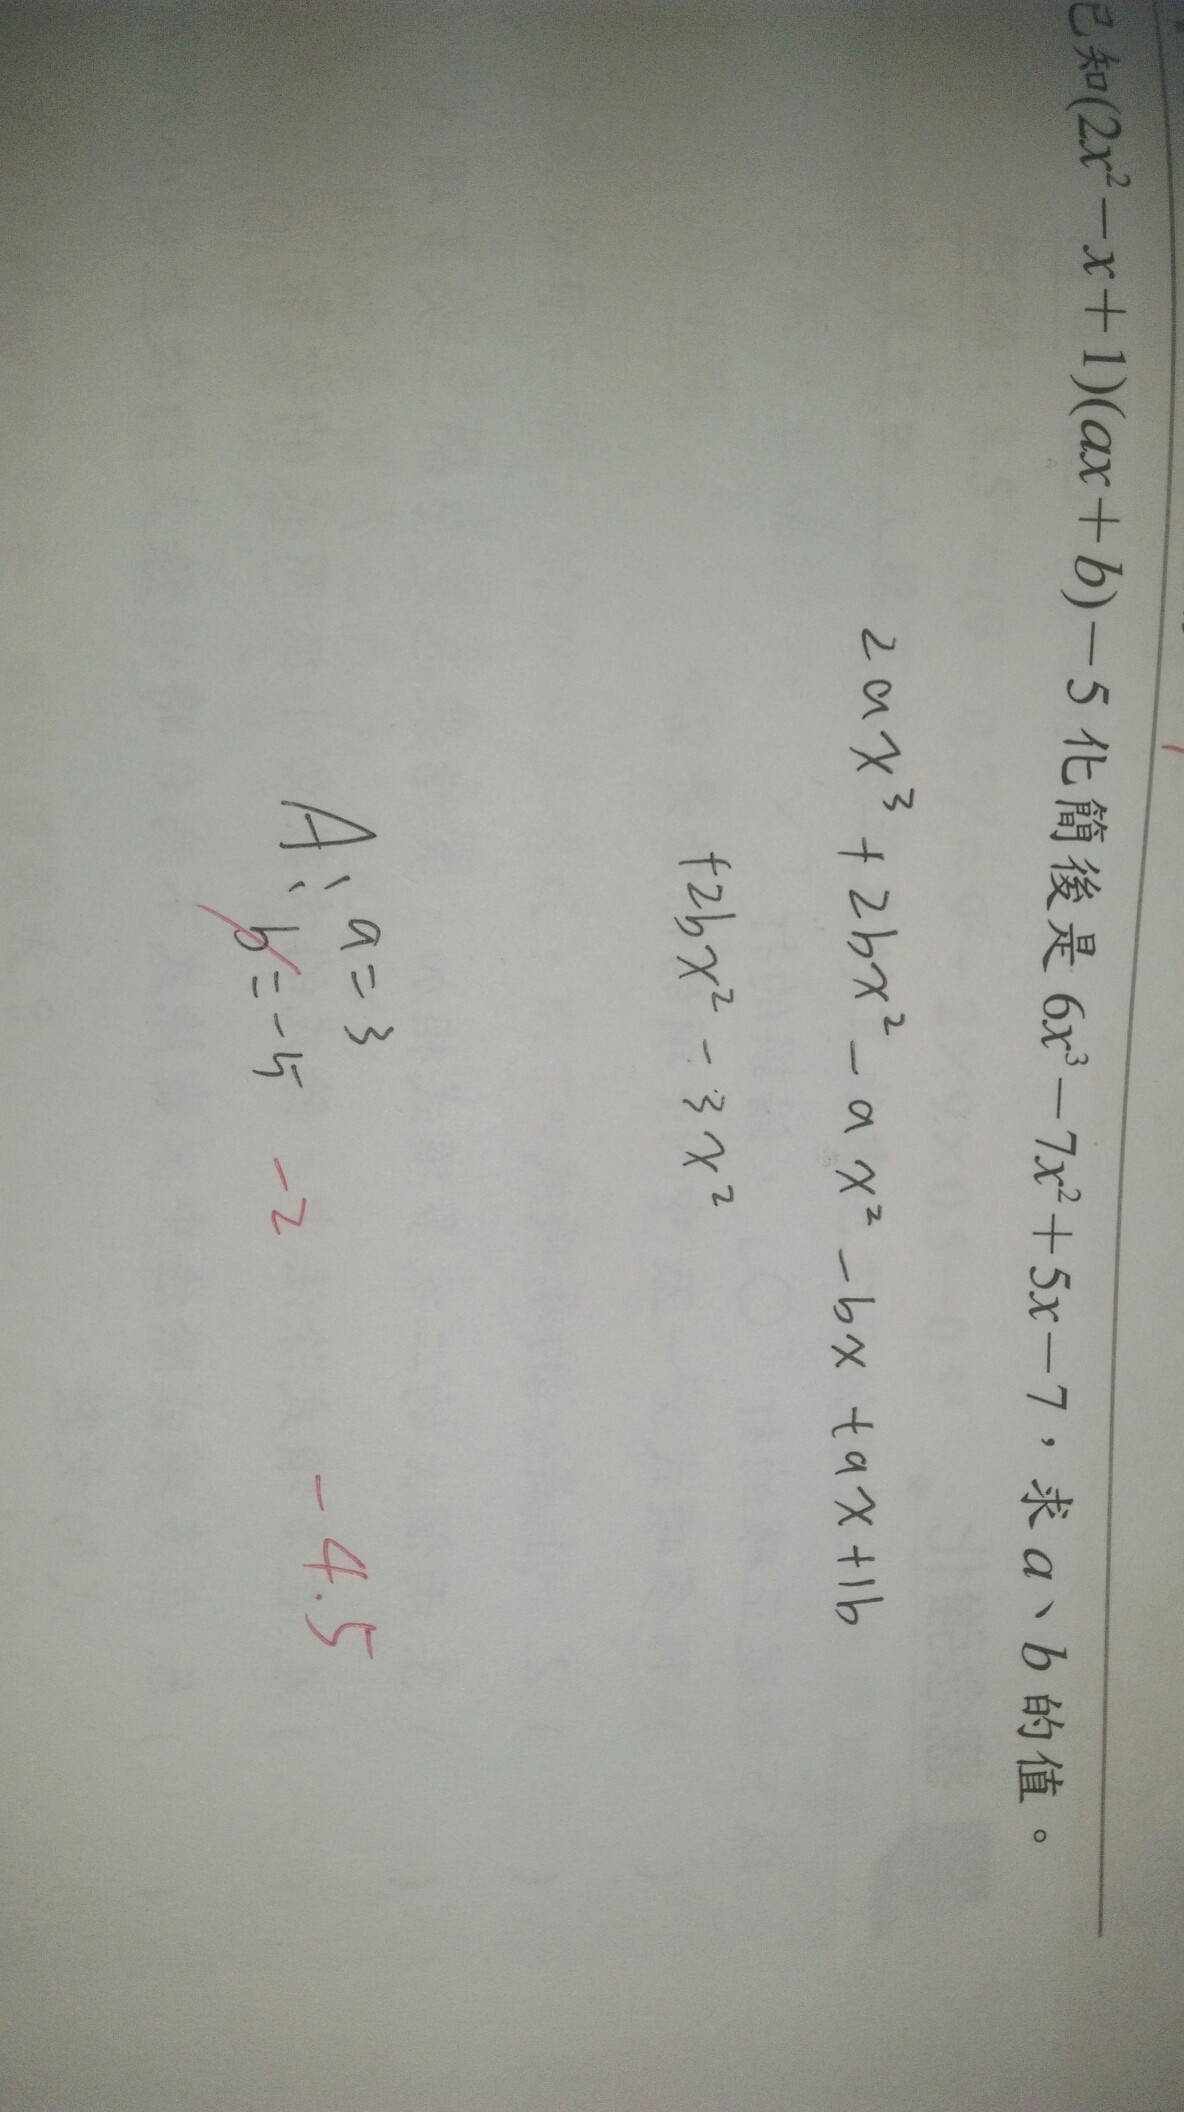 已知(2x²－x＋1)(ax＋b)－5化簡後是6x³－7x²＋5x－7，求a、b的值。
2ax³+2bx²-ax²-bx+ax+1b
+2bx²-3x²
A: a=3
b=-5 -2
-4.5